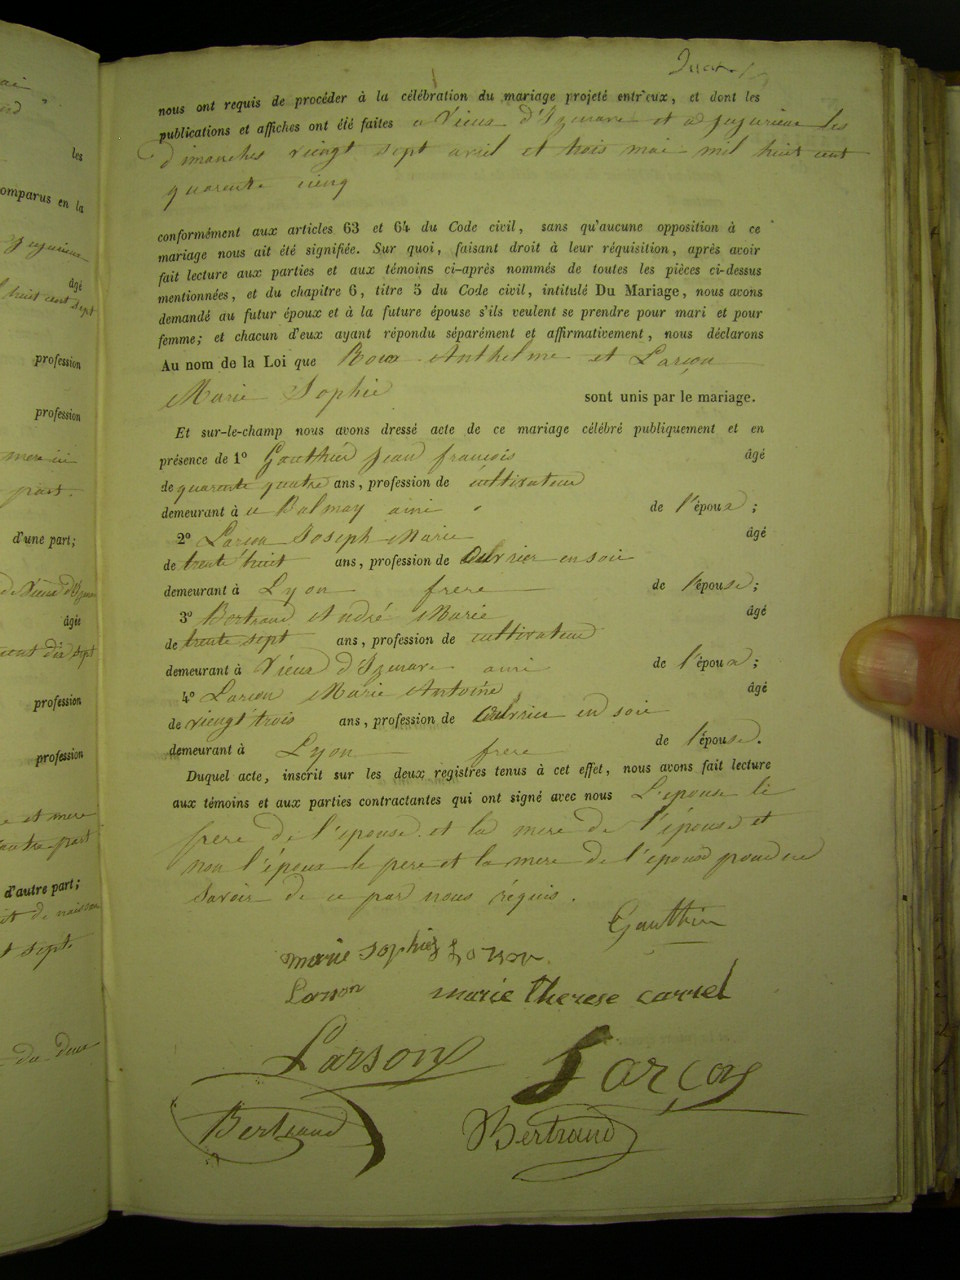 nous ont requis de procéder à la célébration du mariage projeté entr'eux, et dont les
publications et affiches ont été faites a Vieux d'Izenave et a Jujurieux les
dimanches vingt sept avril et trois mai mil huit cent
quarante cinq
conformément aux articles 63 et 64 du Code civil, sans qu'aucune opposition à ce
mariage nous ait été signifiée. Sur quoi, faisant droit à leur réquisition, après avoir
fait lecture aux parties et aux témoins ci-après nommés de toutes les pièces ci-dessus
mentionnées, et du chapitre 6, titre 5 du Code civil, intitulé Du Mariage, nous avons
demandé au futur époux et à la future épouse s'ils veulent se prendre pour mari et pour
femme; et chacun d'eux ayant répondu séparément et affirmativement, nous déclarons
Au nom de la Loi que Roux Anthelme et Larçon
Marie Sophie sont unis par le mariage.
Et sur-le-champ nous avons dressé acte de ce mariage célébré publiquement et en
présence de 1° Gauthier Jean françois âgé
de quarante quatre ans, profession de cultivateur
demeurant à a Balmay ami de l'époux;
2° Larçon Joseph Marie âgé
de trente huit ans, profession de ouvrier en soie
demeurant à Lyon frere de l'épouse;
3° Bertrand André Marie âgé
de trente sept ans, profession de cultivateur
demeurant à Vieux d'Izenave ami de l'époux;
4° Larçon Marie Antoine âgé
de vingt trois ans, profession de ouvrier en soie
demeurant à Lyon frere de l'épouse.
Duquel acte, inscrit sur les deux registres tenus à cet effet, nous avons fait lecture
aux témoins et aux parties contractantes qui ont signé avec nous L'epouse le
pere de l'epouse et la mere de l'épouse et
non l'époux le pere et la mere de l'époux pour ne
savoir de ce par nous réquis.
Gauthier
marie sophie Larson
Larson marie therese carrel
Larson Larçon
Bertrand Bertrand
les
omparus en la
âgé
profession
profession
mere ici
part.
d'une part;
âgée
profession
profession
et mere
autre part
d'autre part;